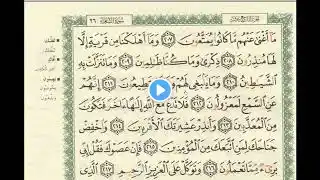 الجزء التاسع عشر سورة الشعراء ٢٦
مَآ أَغْنَىٰ عَنْهُم مَّا كَانُوا۟ يُمَتَّعُونَ ٢٠٧ وَمَآ أَهْلَكْنَا مِن قَرْيَةٍ إِلَّا
لَهَا مُنذِرُونَ ٢٠٨ ذِكْرَىٰ وَمَا كُنَّا ظَٰلِمِينَ ٢٠٩ وَمَا تَنَزَّلَتْ بِهِ
ٱلشَّيَٰطِينُ ٢١٠ وَمَا يَنۢبَغِى لَهُمْ وَمَا يَسْتَطِيعُونَ ٢١١ إِنَّهُمْ
عَنِ ٱلسَّمْعِ لَمَعْزُولُونَ ٢١٢ فَلَا تَدْعُ مَعَ ٱللَّهِ إِلَٰهًا ءَاخَرَ فَتَكُونَ
مِنَ ٱلْمُعَذَّبِينَ ٢١٣ وَأَنذِرْ عَشِيرَتَكَ ٱلْأَقْرَبِينَ ٢١٤ وَٱخْفِضْ
جَنَاحَكَ لِمَنِ ٱتَّبَعَكَ مِنَ ٱلْمُؤْمِنِينَ ٢١٥ فَإِنْ عَصَوْكَ فَقُلْ إِنِّى
بَرِىٓءٌ مِّمَّا تَعْمَلُونَ ٢١٦ وَتَوَكَّلْ عَلَى ٱلْعَزِيزِ ٱلرَّحِيمِ ٢١٧ ٱلَّذِى